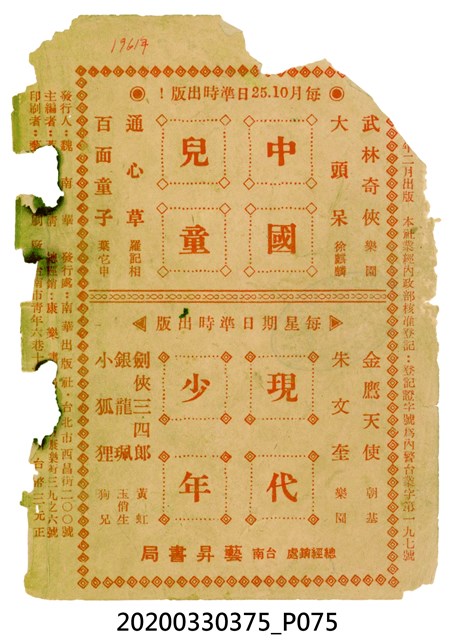 1961年
每月10.25日準時出版！
中國
兒童
武林奇俠 樂園
大頭呆 徐麒麟
通心草 羅記相
百面童子 葉它申
每星期日準時出版
現代
少年
金鷹天使 朝基
朱文奎 樂園
劍俠三四郎 黃虹
銀龍珮 玉俏生
小狐狸 狗兄
總經銷處 台南 藝昇書局
年二月出版 本社業經內政部核准登記：登記證字號為內警台業字第一九七號
發行人：魏南華 發行處：南華出版社：台北市西昌街二〇〇號
主編者：
印刷者：
台南市青年六巷十
街三九之六號
台幣二元正
20200330375_P075